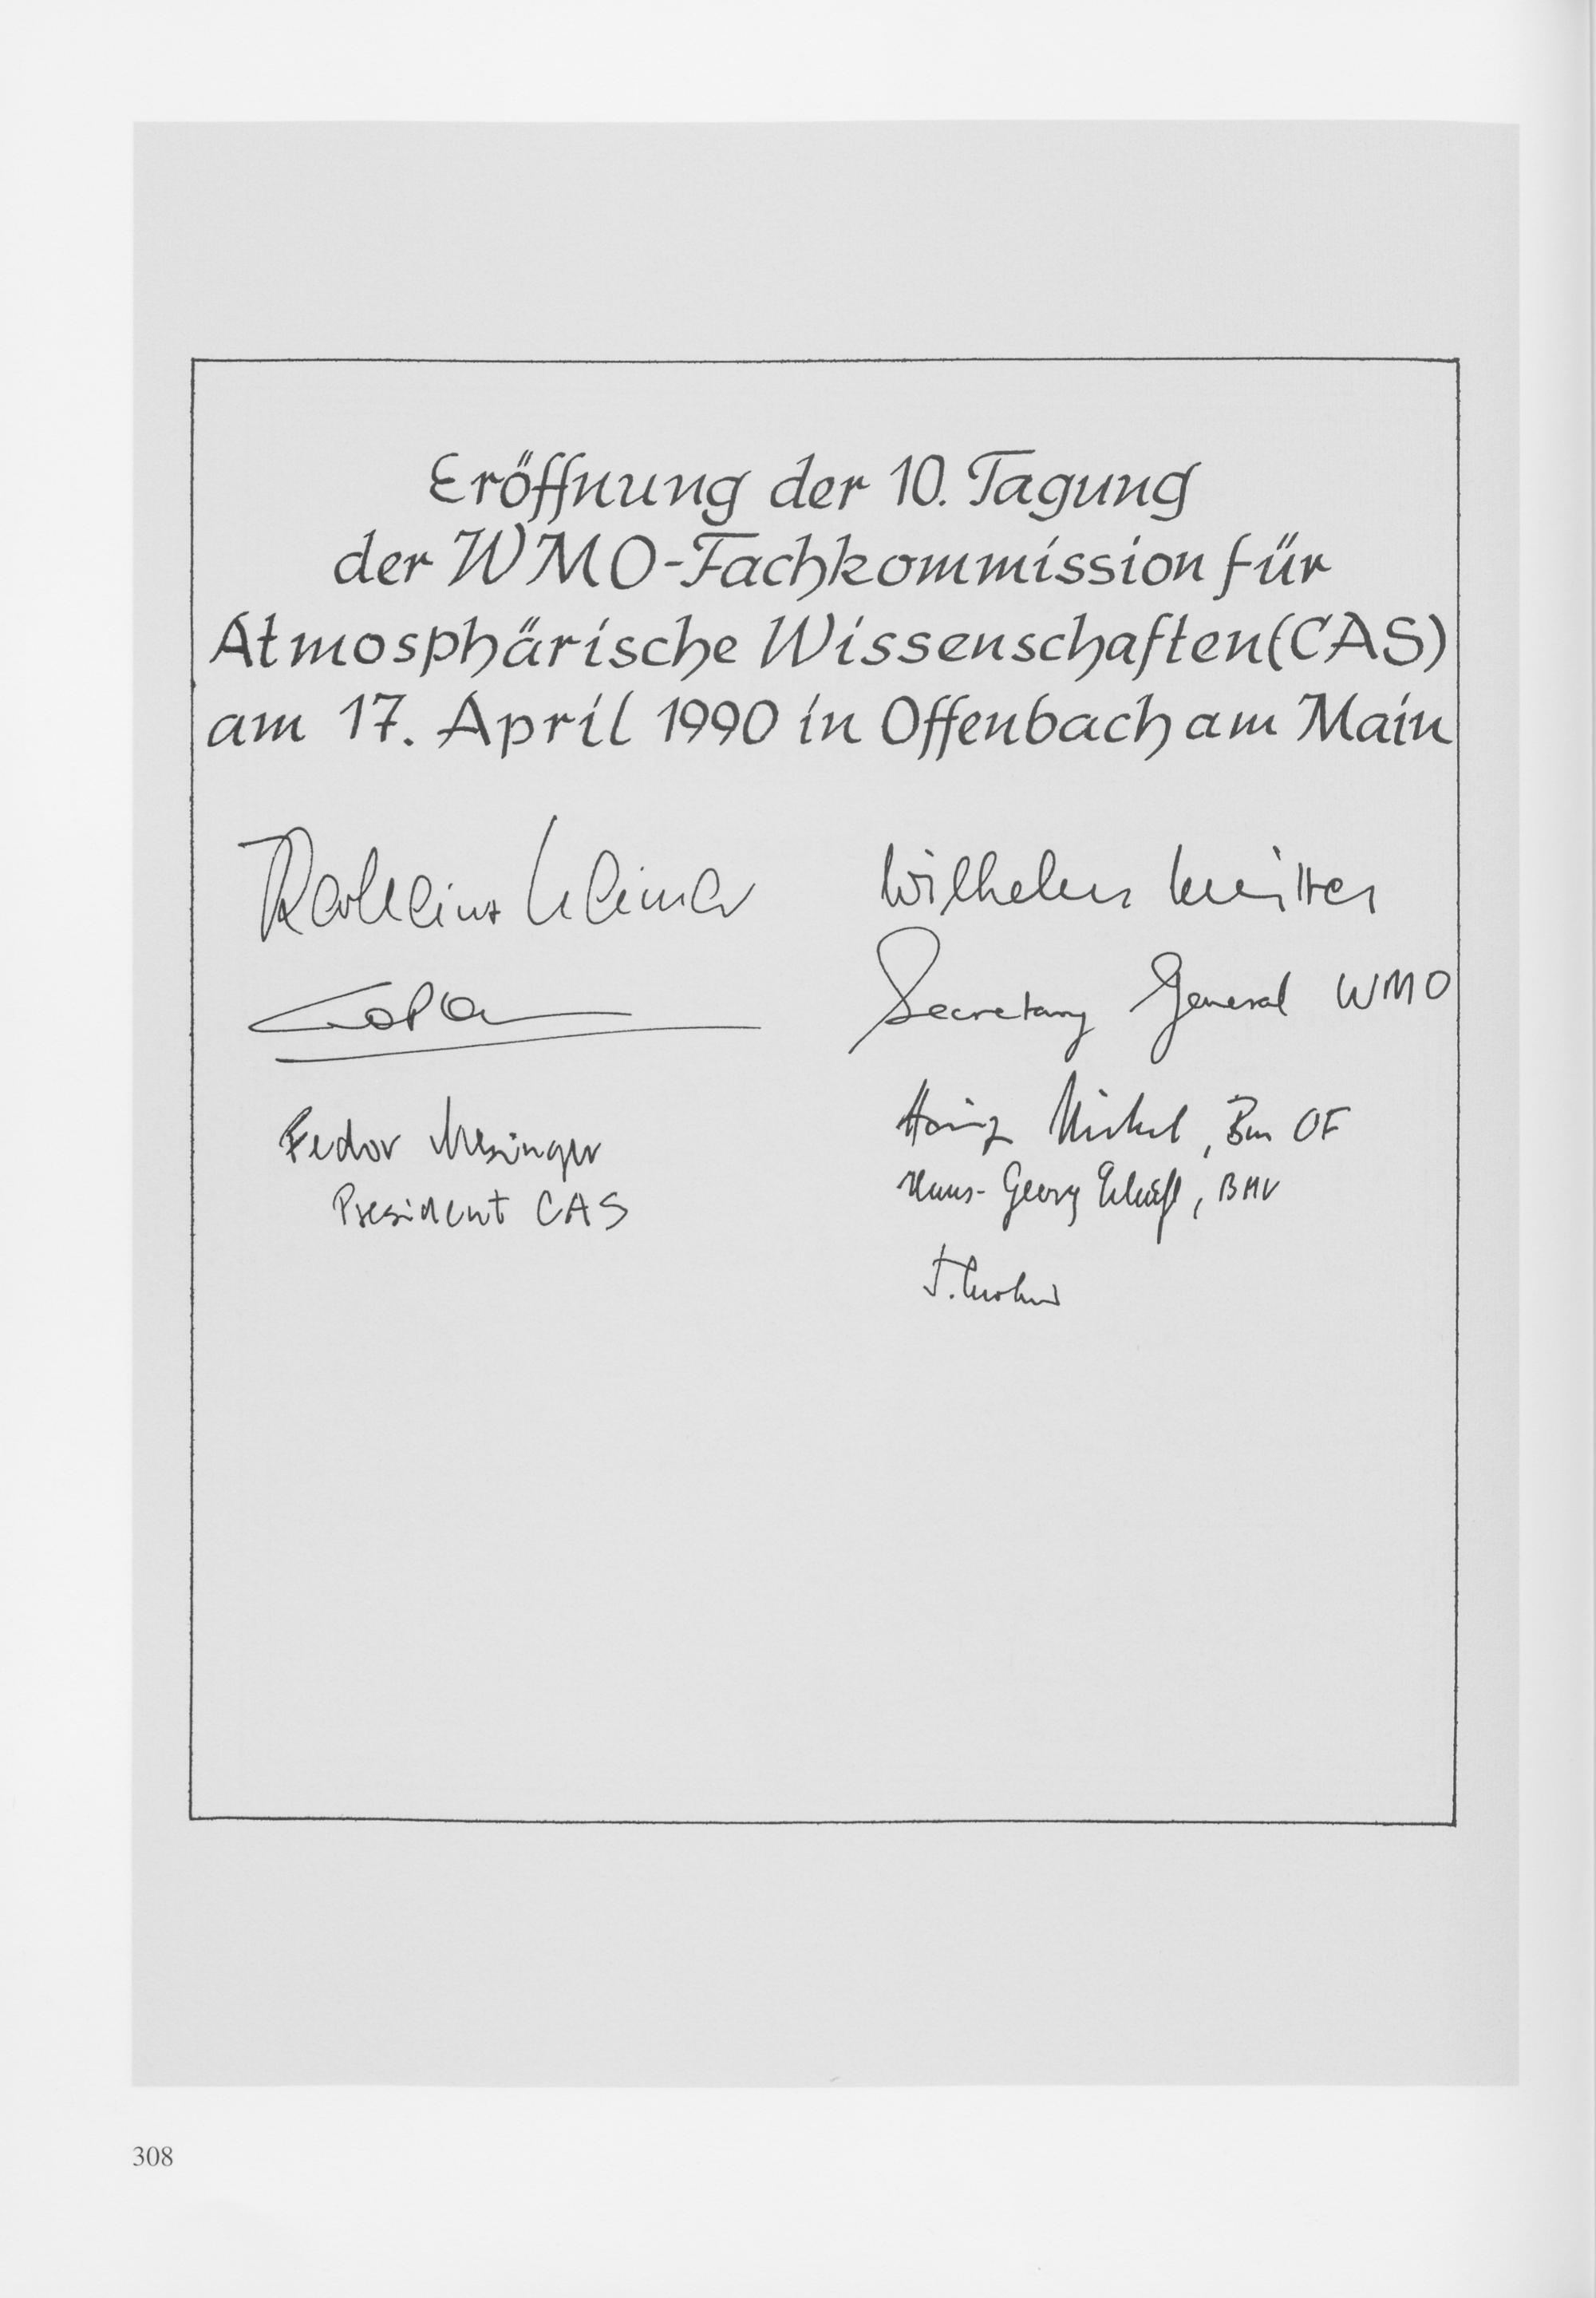 Eröffnung der 10. Tagung
der WMO-Fachkommission für
Atmosphärische Wissenschaften (CAS)
am 17. April 1990 in Offenbach am Main
Wilhelm
Secretary General WMO
Fedor Mesinger
President CAS
Heinz Nickel, Bm OF
Hans-Georg, BMV
308